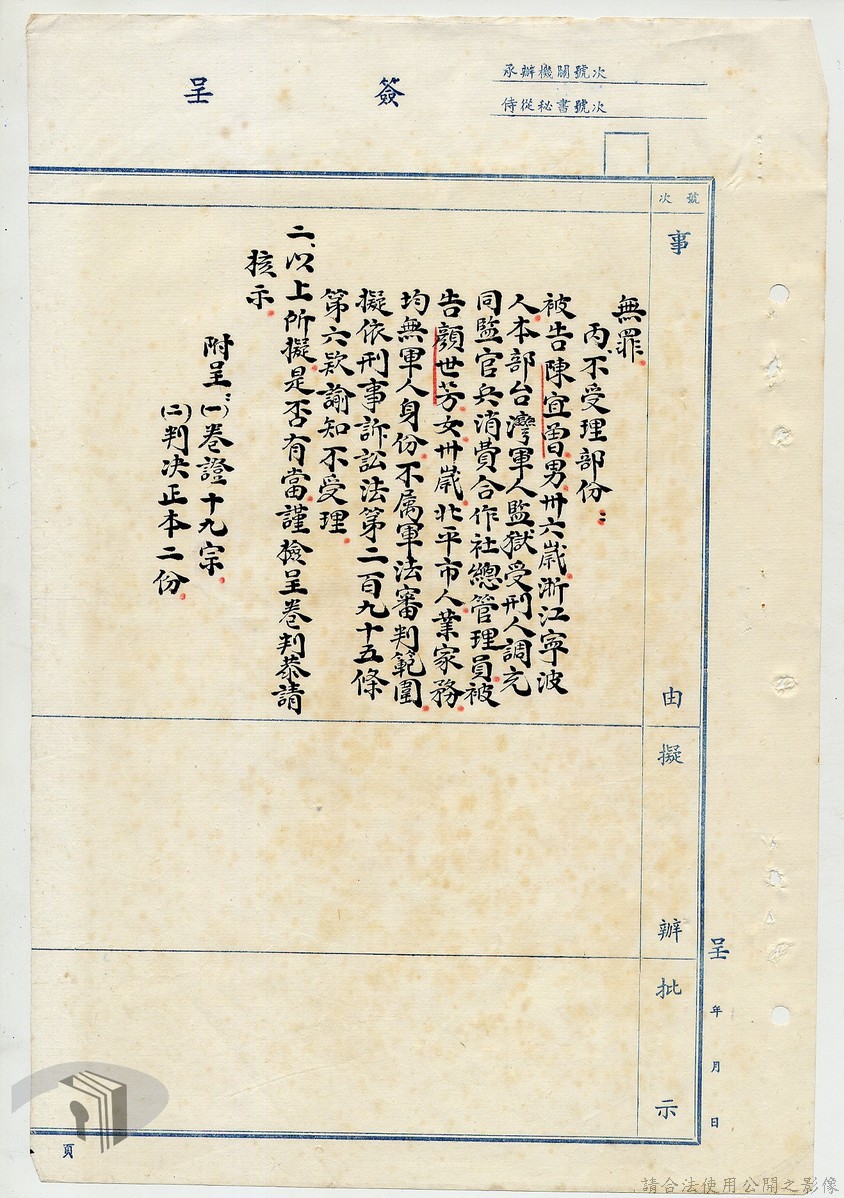 承辦機關號次
侍從秘書號次
簽呈
號次
事由
擬辦
批示
呈 年 月 日
無罪。
丙、不受理部份：
被告陳宜曾男卅六歲。浙江寧波
人。本部台灣軍人監獄受刑人調充
同監官兵消費合作社總管理員。被
告顏世芳。女。卅歲。北平市人。業家務。
均無軍人身份。不屬軍法審判範圍。
擬依刑事訴訟法第二百九十五條
第六欵諭知不受理。
二、以上所擬。是否有當。謹檢呈卷判恭請
核示。
附呈：㈠卷證十九宗。
㈡判决正本二份。
頁
請合法使用公開之影像